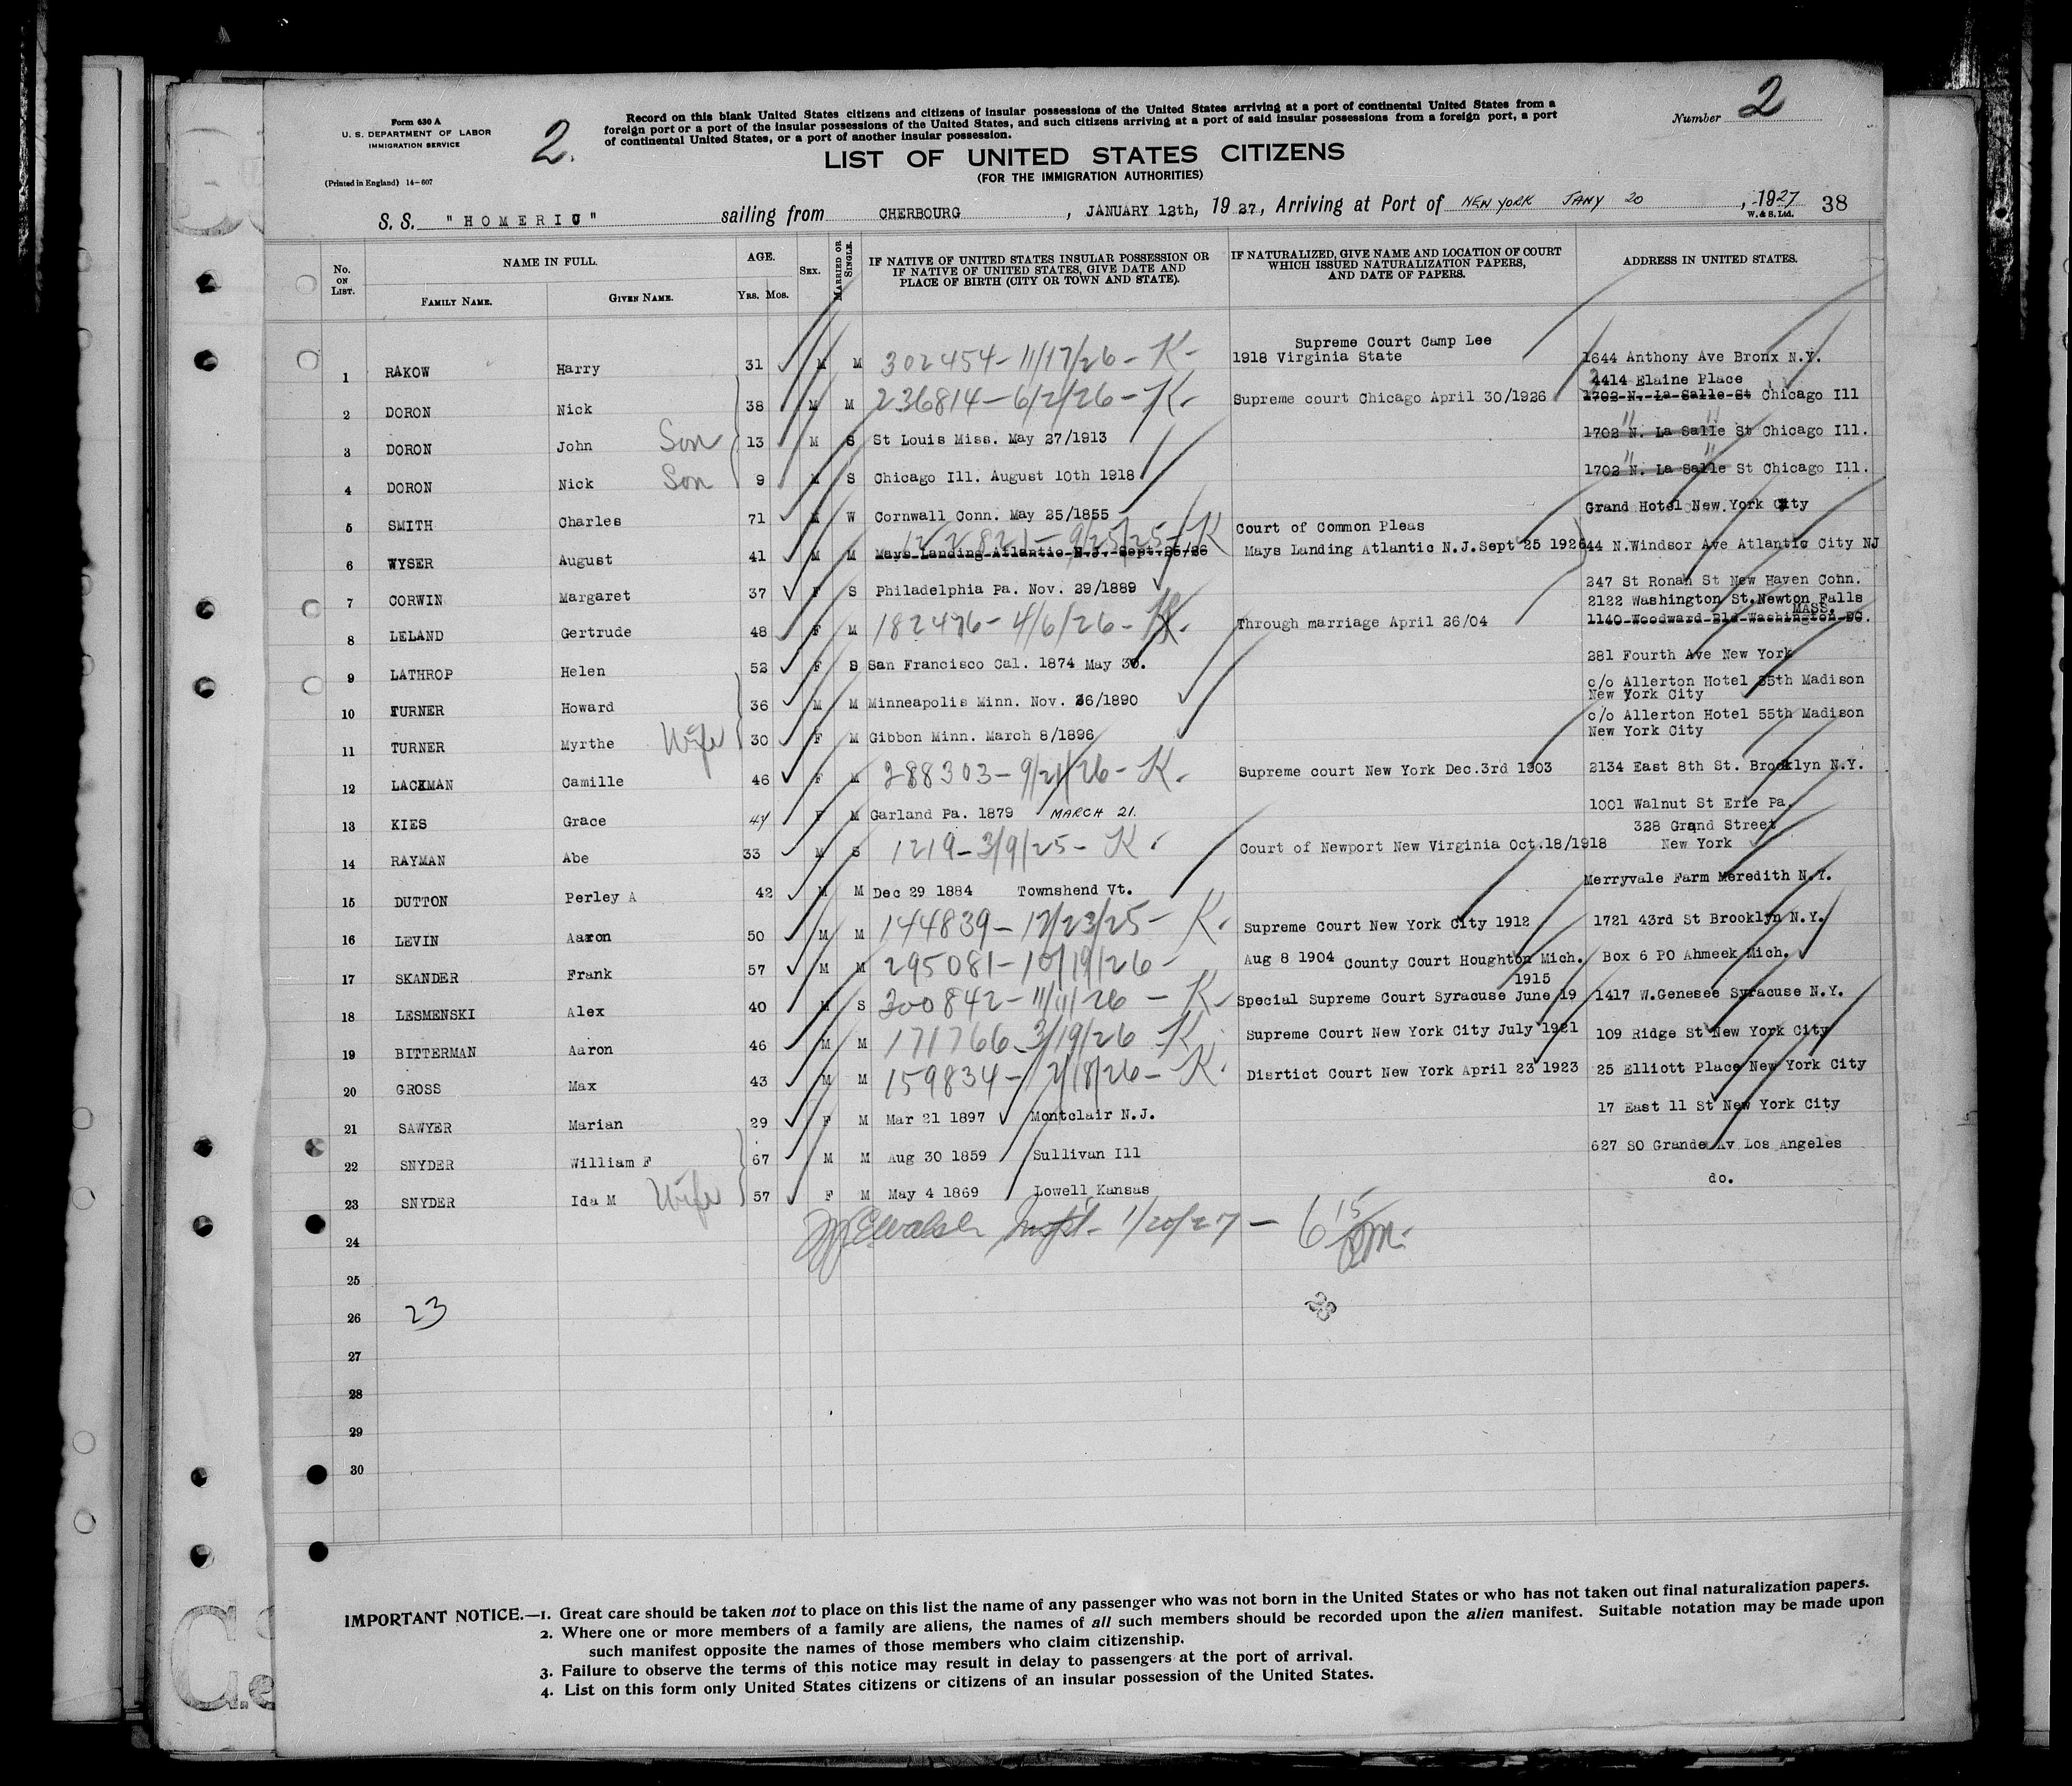 Form 630 A
U. S. DEPARTMENT OF LABOR
IMMIGRATION SERVICE
(Printed in England) 14-607
2.
Record on this blank United States citizens and citizens of insular possessions of the United States arriving at a port of continental United States from a
foreign port or a port of the insular possessions of the United States, and such citizens arriving at a port of said insular possessions from a foreign port, a port
of continental United States, or a port of another insular possession.
Number 2
LIST OF UNITED STATES CITIZENS
(FOR THE IMMIGRATION AUTHORITIES)
S. S. "HOMERIC" sailing from CHERBOURG, JANUARY 12th, 19 27, Arriving at Port of NEW YORK JANY 20, 1927
W. & S. Ltd. 38
No. ON LIST. NAME IN FULL. FAMILY NAME. GIVEN NAME. AGE. Yrs. Mos. SEX. MARRIED OR SINGLE. IF NATIVE OF UNITED STATES INSULAR POSSESSION OR IF NATIVE OF UNITED STATES, GIVE DATE AND PLACE OF BIRTH (CITY OR TOWN AND STATE). IF NATURALIZED, GIVE NAME AND LOCATION OF COURT WHICH ISSUED NATURALIZATION PAPERS, AND DATE OF PAPERS. ADDRESS IN UNITED STATES.
1 RAKOW Harry 31 M M 302454-11/17/26-K- Supreme Court Camp Lee 1918 Virginia State 1644 Anthony Ave Bronx N.Y.
2 DORON Nick 38 M M 236814-6/2/26-K. Supreme court Chicago April 30/1926 4414 Elaine Place 1702 N. La Salle St Chicago Ill
3 DORON John Son 13 M S St Louis Miss. May 27/1913 1702 N. La Salle St Chicago Ill. " "
4 DORON Nick Son 9 M S Chicago Ill. August 10th 1918 1702 N. La Salle St Chicago Ill. " "
5 SMITH Charles 71 M W Cornwall Conn. May 25/1855 Grand Hotel New York City
6 WYSER August 41 M M 122821-9/25/25-K Mays Landing Atlantic N.J. Sept. 25/26 Court of Common Pleas Mays Landing Atlantic N.J.Sept 25 1926 44 N.Windsor Ave Atlantic City NJ
7 CORWIN Margaret 37 F S Philadelphia Pa. Nov. 29/1889 247 St Ronan St New Haven Conn.
8 LELAND Gertrude 48 F M 182476-4/6/26-K. Through marriage April 26/04 2122 Washington St.Newton Falls MASS. 1140 Woodward Bld Washington DC.
9 LATHROP Helen 52 F S San Francisco Cal. 1874 May 30. 281 Fourth Ave New York
10 TURNER Howard 36 M M Minneapolis Minn. Nov. 26/1890 c/o Allerton Hotel 55th Madison New York City
11 TURNER Myrthe Wife 30 F M Gibbon Minn. March 8/1896 c/o Allerton Hotel 55th Madison New York City
12 LACKMAN Camille 46 F M 288303-9/21/26-K. Supreme court New York Dec.3rd 1903 2134 East 8th St. Brooklyn N.Y.
13 KIES Grace 47 F M Garland Pa. 1879 MARCH 21. 1001 Walnut St Erie Pa.
14 RAYMAN Abe 33 M S 1219-3/9/25-K. Court of Newport New Virginia Oct.18/1918 328 Grand Street New York
15 DUTTON Perley A 42 M M Dec 29 1884 Townshend Vt. Merryvale Farm Meredith N.Y.
16 LEVIN Aaron 50 M M 144839-12/23/25-K. Supreme Court New York City 1912 1721 43rd St Brooklyn N.Y.
17 SKANDER Frank 57 M M 295081-10/19/26- Aug 8 1904 County Court Houghton Mich. Box 6 PO Ahmeek Mich.
18 LESMENSKI Alex 40 M S 300842-11/11/26-K- Special Supreme Court Syracuse June 19 1915 1417 W.Genesee Syracuse N.Y.
19 BITTERMAN Aaron 46 M M 171766-3/19/26 K. Supreme Court New York City July 1921 109 Ridge St New York City
20 GROSS Max 43 M M 159834-2/18/26-K. Disrtict Court New York April 23 1923 25 Elliott Place New York City
21 SAWYER Marian 29 F M Mar 21 1897 Montclair N.J. 17 East 11 St New York City
22 SNYDER William F 67 M M Aug 30 1859 Sullivan Ill 627 SO Grande Av Los Angeles
23 SNYDER Ida M Wife 57 F M May 4 1869 Lowell Kansas do.
24 Walsh Inspt- 1/20/27 - 6 15 PM.
25
26 23
27
28
29
30
IMPORTANT NOTICE.—1. Great care should be taken not to place on this list the name of any passenger who was not born in the United States or who has not taken out final naturalization papers.
2. Where one or more members of a family are aliens, the names of all such members should be recorded upon the alien manifest. Suitable notation may be made upon
such manifest opposite the names of those members who claim citizenship.
3. Failure to observe the terms of this notice may result in delay to passengers at the port of arrival.
4. List on this form only United States citizens or citizens of an insular possession of the United States.